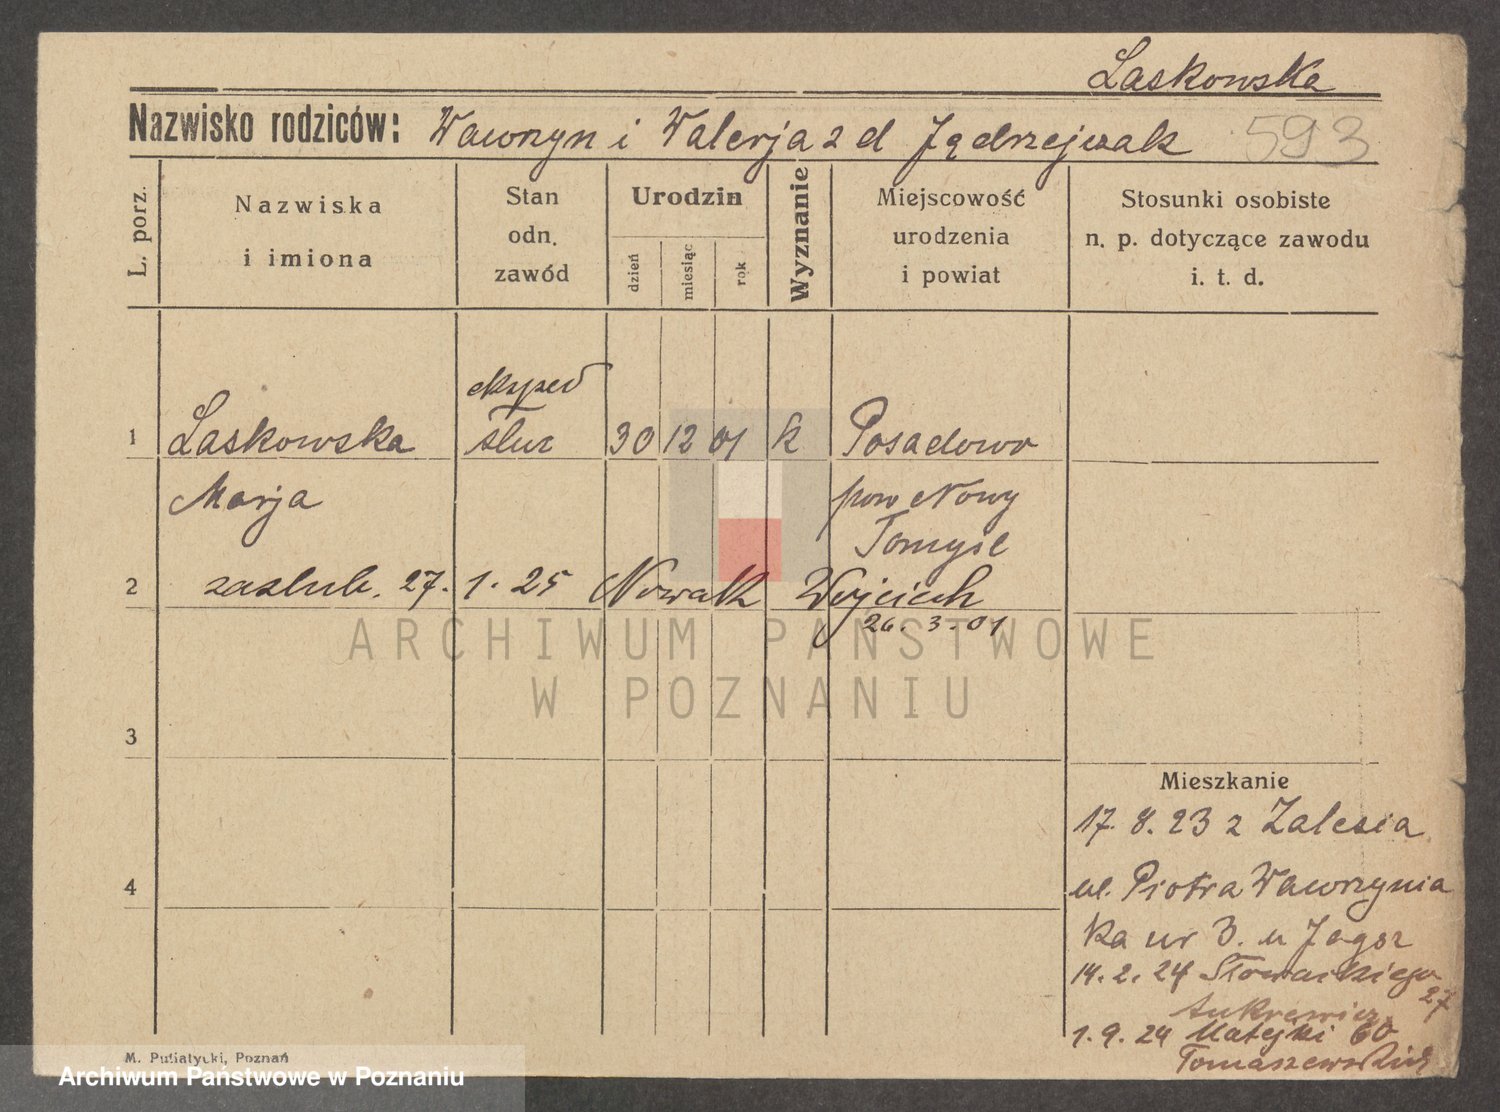 Laskowska
Nazwisko rodziców: Wawrzyn i Walerja z d Jędrzejczak 593
L. porz.
Nazwiska
i imiona
Stan
odn.
zawód
Urodzin
dzień
miesiąc
rok
Wyznanie
Miejscowość
urodzenia
i powiat
Stosunki osobiste
n. p. dotyczące zawodu
i. t. d.
eksped
1 Laskowska 30 12 01 k Posadowo
Marja pow Nowy
Tomysl
2 zaslub. 27. 1. 25 Nowak Wojciech
26. 3. 01
ARCHIWUM PAŃSTWOWE
W POZNANIU
3
Mieszkanie
17. 8. 23 z Zalesia
4
ul. Piotra Wawrzynia
ka nr 3. u
14. 2. 24 Słowackiego
27
1. 9. 24 Matejki 60
M. Putiatycki, Poznań
Archiwum Państwowe w Poznaniu